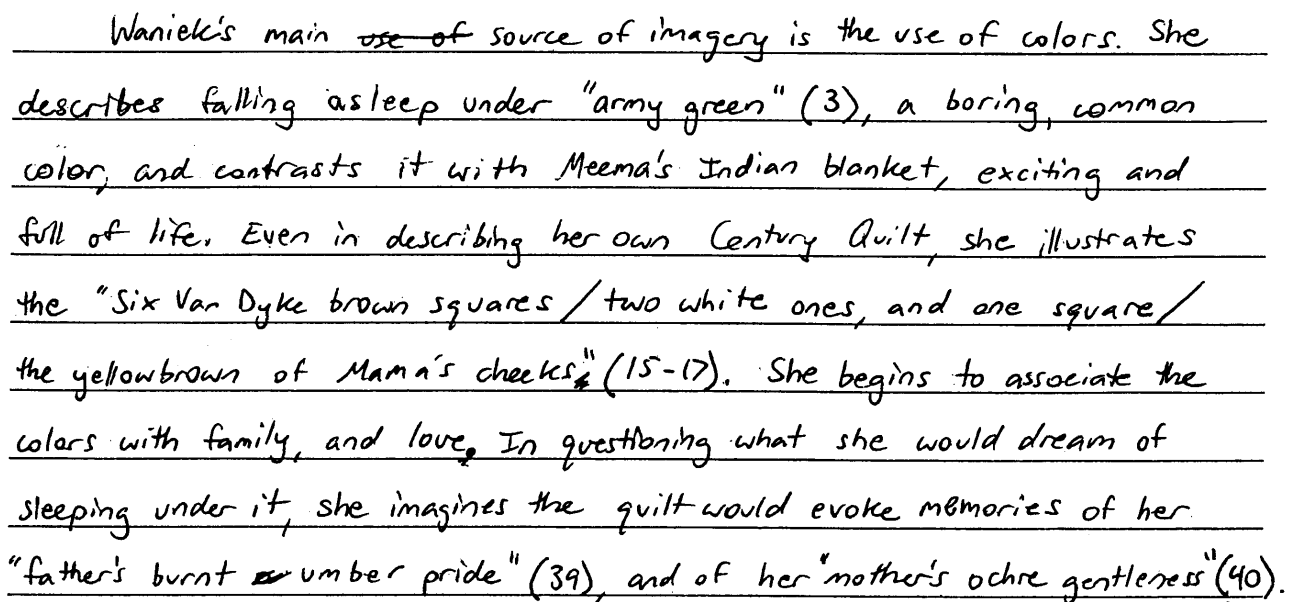 Waniek's main use of source of imagery is the use of colors. She
describes falling asleep under "army green" (3), a boring, common
color, and contrasts it with Meema's Indian blanket, exciting and
full of life. Even in describing her own Century Quilt, she illustrates
the "Six Van Dyke brown squares / two white ones, and one square /
the yellowbrown of Mama's cheeks" (15-17). She begins to associate the
colors with family, and love. In questioning what she would dream of
sleeping under it, she imagines the quilt would evoke memories of her
"father's burnt umber pride" (39), and of her "mother's ochre gentleness" (40).